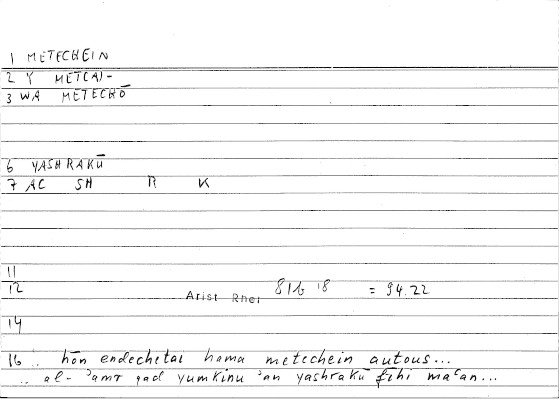 1 METECHEIN
2 Y MET(A)-
3 WA METECHŌ
6 YASHRAKŪ
7 AC SH R K
11
12 Arist Rhet 81b 18 = 94.22
14
16 .. hōn endechetai hama metechein autous...
.. al-ʾamr qad yumkinu ʾan yashrakū fīhi maʿan...